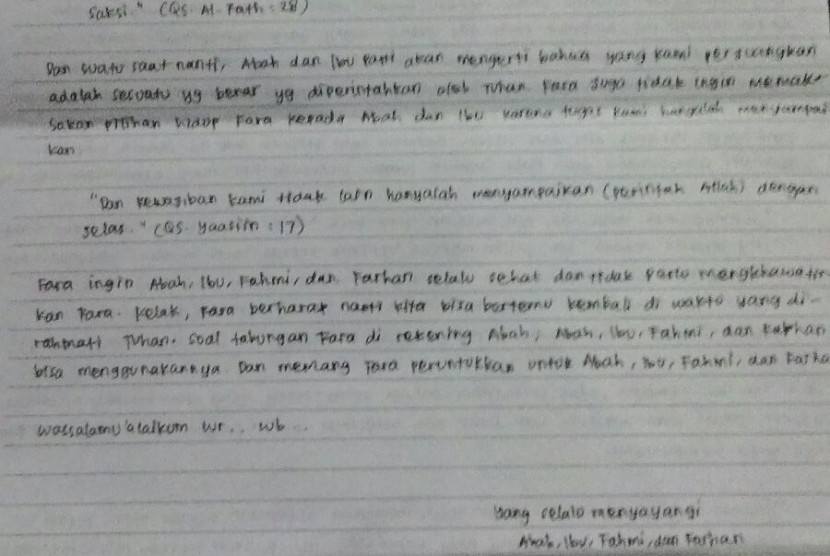 saksi." (QS. Al-Fath : 28)
Dan suatu saat nanti, Abah dan Ibu pasti akan mengerti bahwa yang kami perjuangkan
adalah sesuatu yg benar yg diperintahkan oleh Tuhan. Fara juga tidak ingin memak
sakan pilihan hidup Fara kepada Abah dan Ibu karena tugas kami hanyalah menyampai
kan.
"Dan kewajiban kami tidak lain hanyalah menyampaikan (perintah Allah) dengan
jelas." (QS. Yaasiin : 17)
Fara ingin Abah, Ibu, Fahmi, dan Farhan selalu sehat dan tidak perlu mengkhawatir
kan Fara. Kelak, Fara berharap nanti kita bisa bertemu kembali di waktu yang di-
rahmati Tuhan. Soal tabungan Fara di rekening Abah, Abah, Ibu, Fahmi, dan Farhan
bisa menggunakannya. Dan memang Fara peruntukkan untuk Abah, Ibu, Fahmi, dan Farha
Wassalamu'alaikum wr.. wb..
Yang selalu menyayangi
Abah, Ibu, Fahmi, dan Farhan